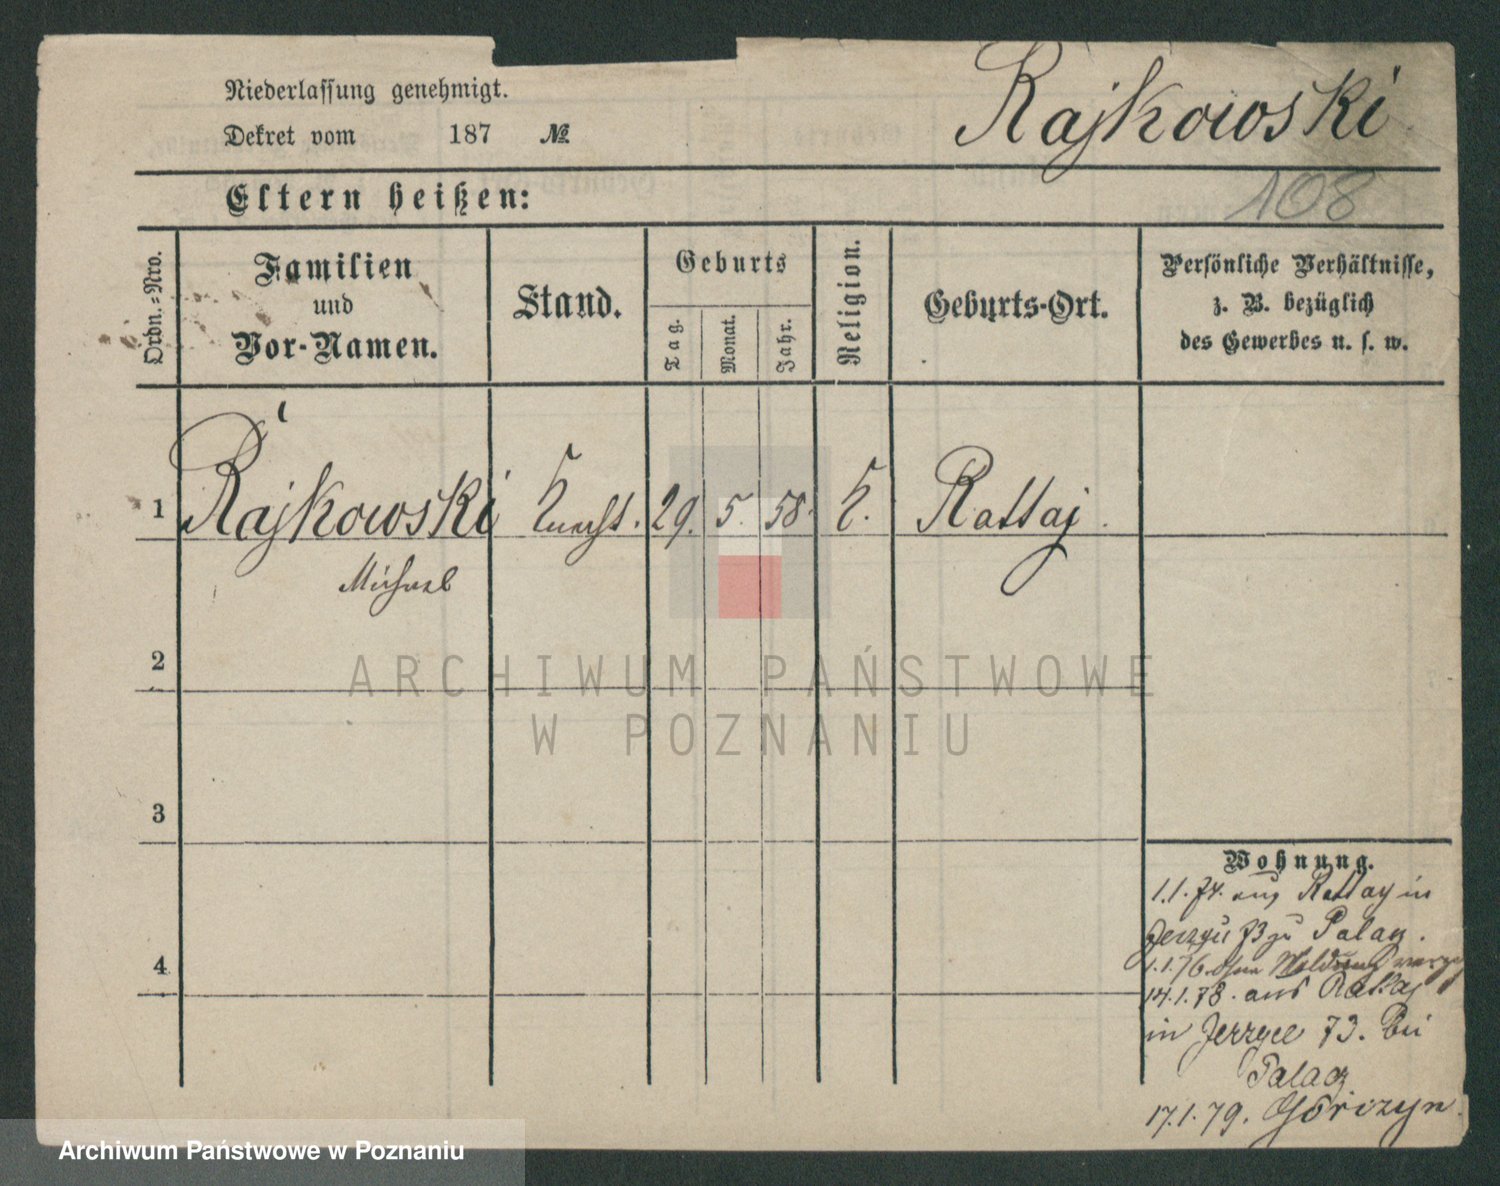 Niederlassung genehmigt.
Dekret vom 187 №
Rajkowski
108
Eltern heißen:
Ordn.=Nro.
Familien
und
Vor-Namen.
Stand.
Geburts
Tag.
Monat.
Jahr.
Religion.
Geburts-Ort.
Persönliche Verhältnisse,
z. B. bezüglich
des Gewerbes u. s. w.
1 Rajkowski Knecht. 29. 5. 58. K. Rattaj.
Michael
2
3
4
Wohnung.
1.1.74. aus Rattay in
73 zu Palacz.
1.1.76. ohne Meldung
14.1.78. aus Rattaj
in Jerzyce 73. bei
Palacz
17.1.79. Górczyn.
ARCHIWUM PAŃSTWOWE
W POZNANIU
Archiwum Państwowe w Poznaniu